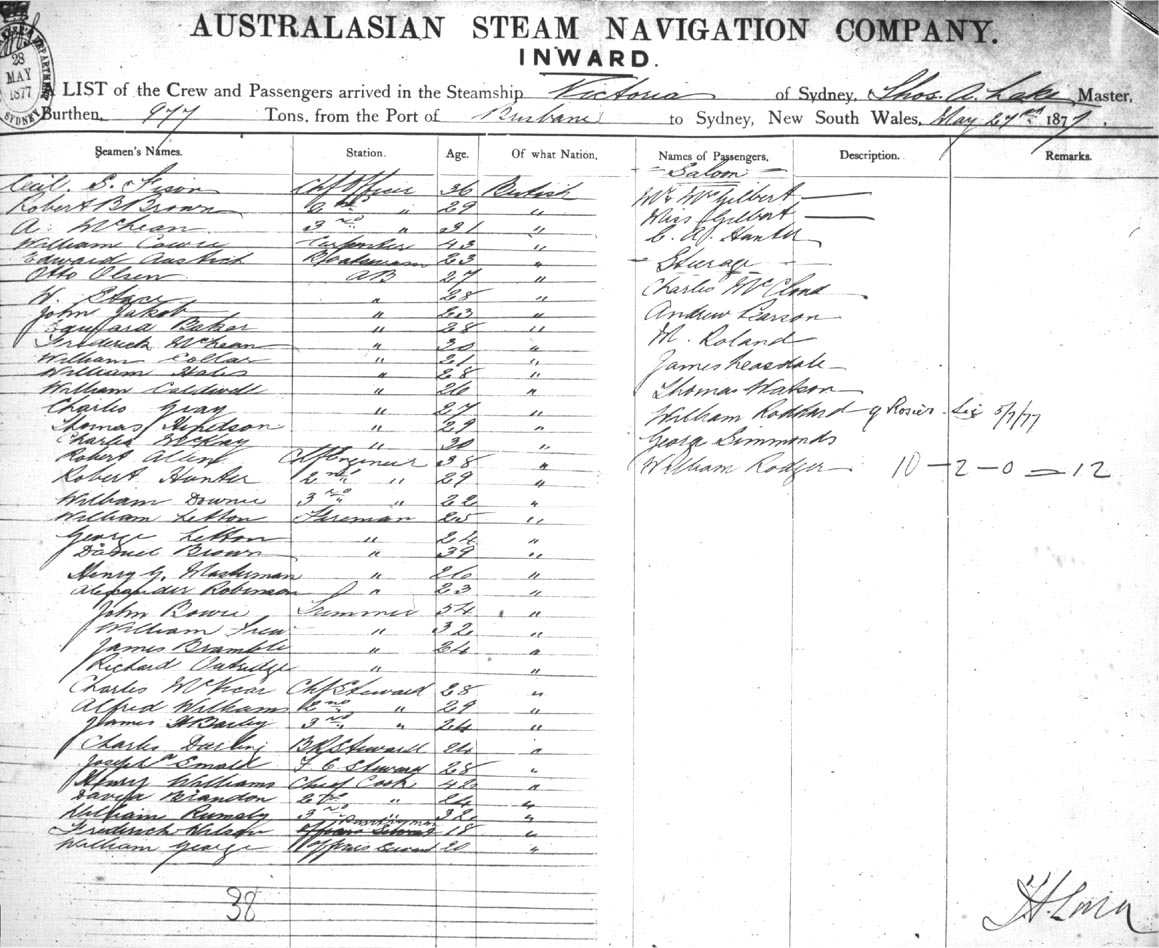 AUSTRALASIAN STEAM NAVIGATION COMPANY.
INWARD.
28
MAY
1877
SYDNEY
LIST of the Crew and Passengers arrived in the Steamship Victoria of Sydney, Thos. A. Lake Master,
Burthen, 977 Tons, from the Port of Brisbane to Sydney, New South Wales, May 27th 1877.
Seamen's Names. Station. Age. Of what Nation, Names of Passengers, Description. Remarks.
- Saloon -
Cecil S. Fison Chf Officer 36 British
Mr McGilbert
Robert B Brown 2nd " 29 "
Miss Gilbert
A. McLean 3rd " 31 "
C. A. Hunter
William Cowie Carpenter 43 "
Edward 23 "
- Sturage -
Otto Olsen AB 27 "
Charles McCloud
W. Stace " 28 "
John Jakob " 23 "
Andrew Pearson
Baker " 28 "
Frederick McLean " 30 "
M. Roland
William Collar " 21 "
James Leasdale
William Hales " 28 "
William Caldwell " 26 "
Thomas Watson
Charles Gray " 27 "
William q Rosier. Sig 5/7/77
Thomas " 29 "
Charles McKay " 30 "
George Simmonds
Robert Allen Chf Engineer 38 "
William Rodger 10 - 2 - 0 = 12
Robert Hunter 2nd " 29 "
William Downie 3rd " 22 "
William Letton Fireman 25 "
George Letton " 24 "
Daniel Brown " 39 "
Henry G. Masterman " 26 "
Alexander Robinson " 23 "
John Bowie 54 "
William Frew " 32 "
James Bramble " 24 "
Richard Oatridge " "
Charles McVicar Chf Steward 28 "
Alfred Williams 2nd " 29 "
James H Bailey 3rd " 24 "
Charles Darling B R Steward 24 "
Joseph F. C. Steward 28 "
Henry Williams Chief Cook 42 "
David Brandon 2nd " 24 "
William Rumsby 3rd " 32 "
Frederick Wilson 18 "
William George 20 "
38